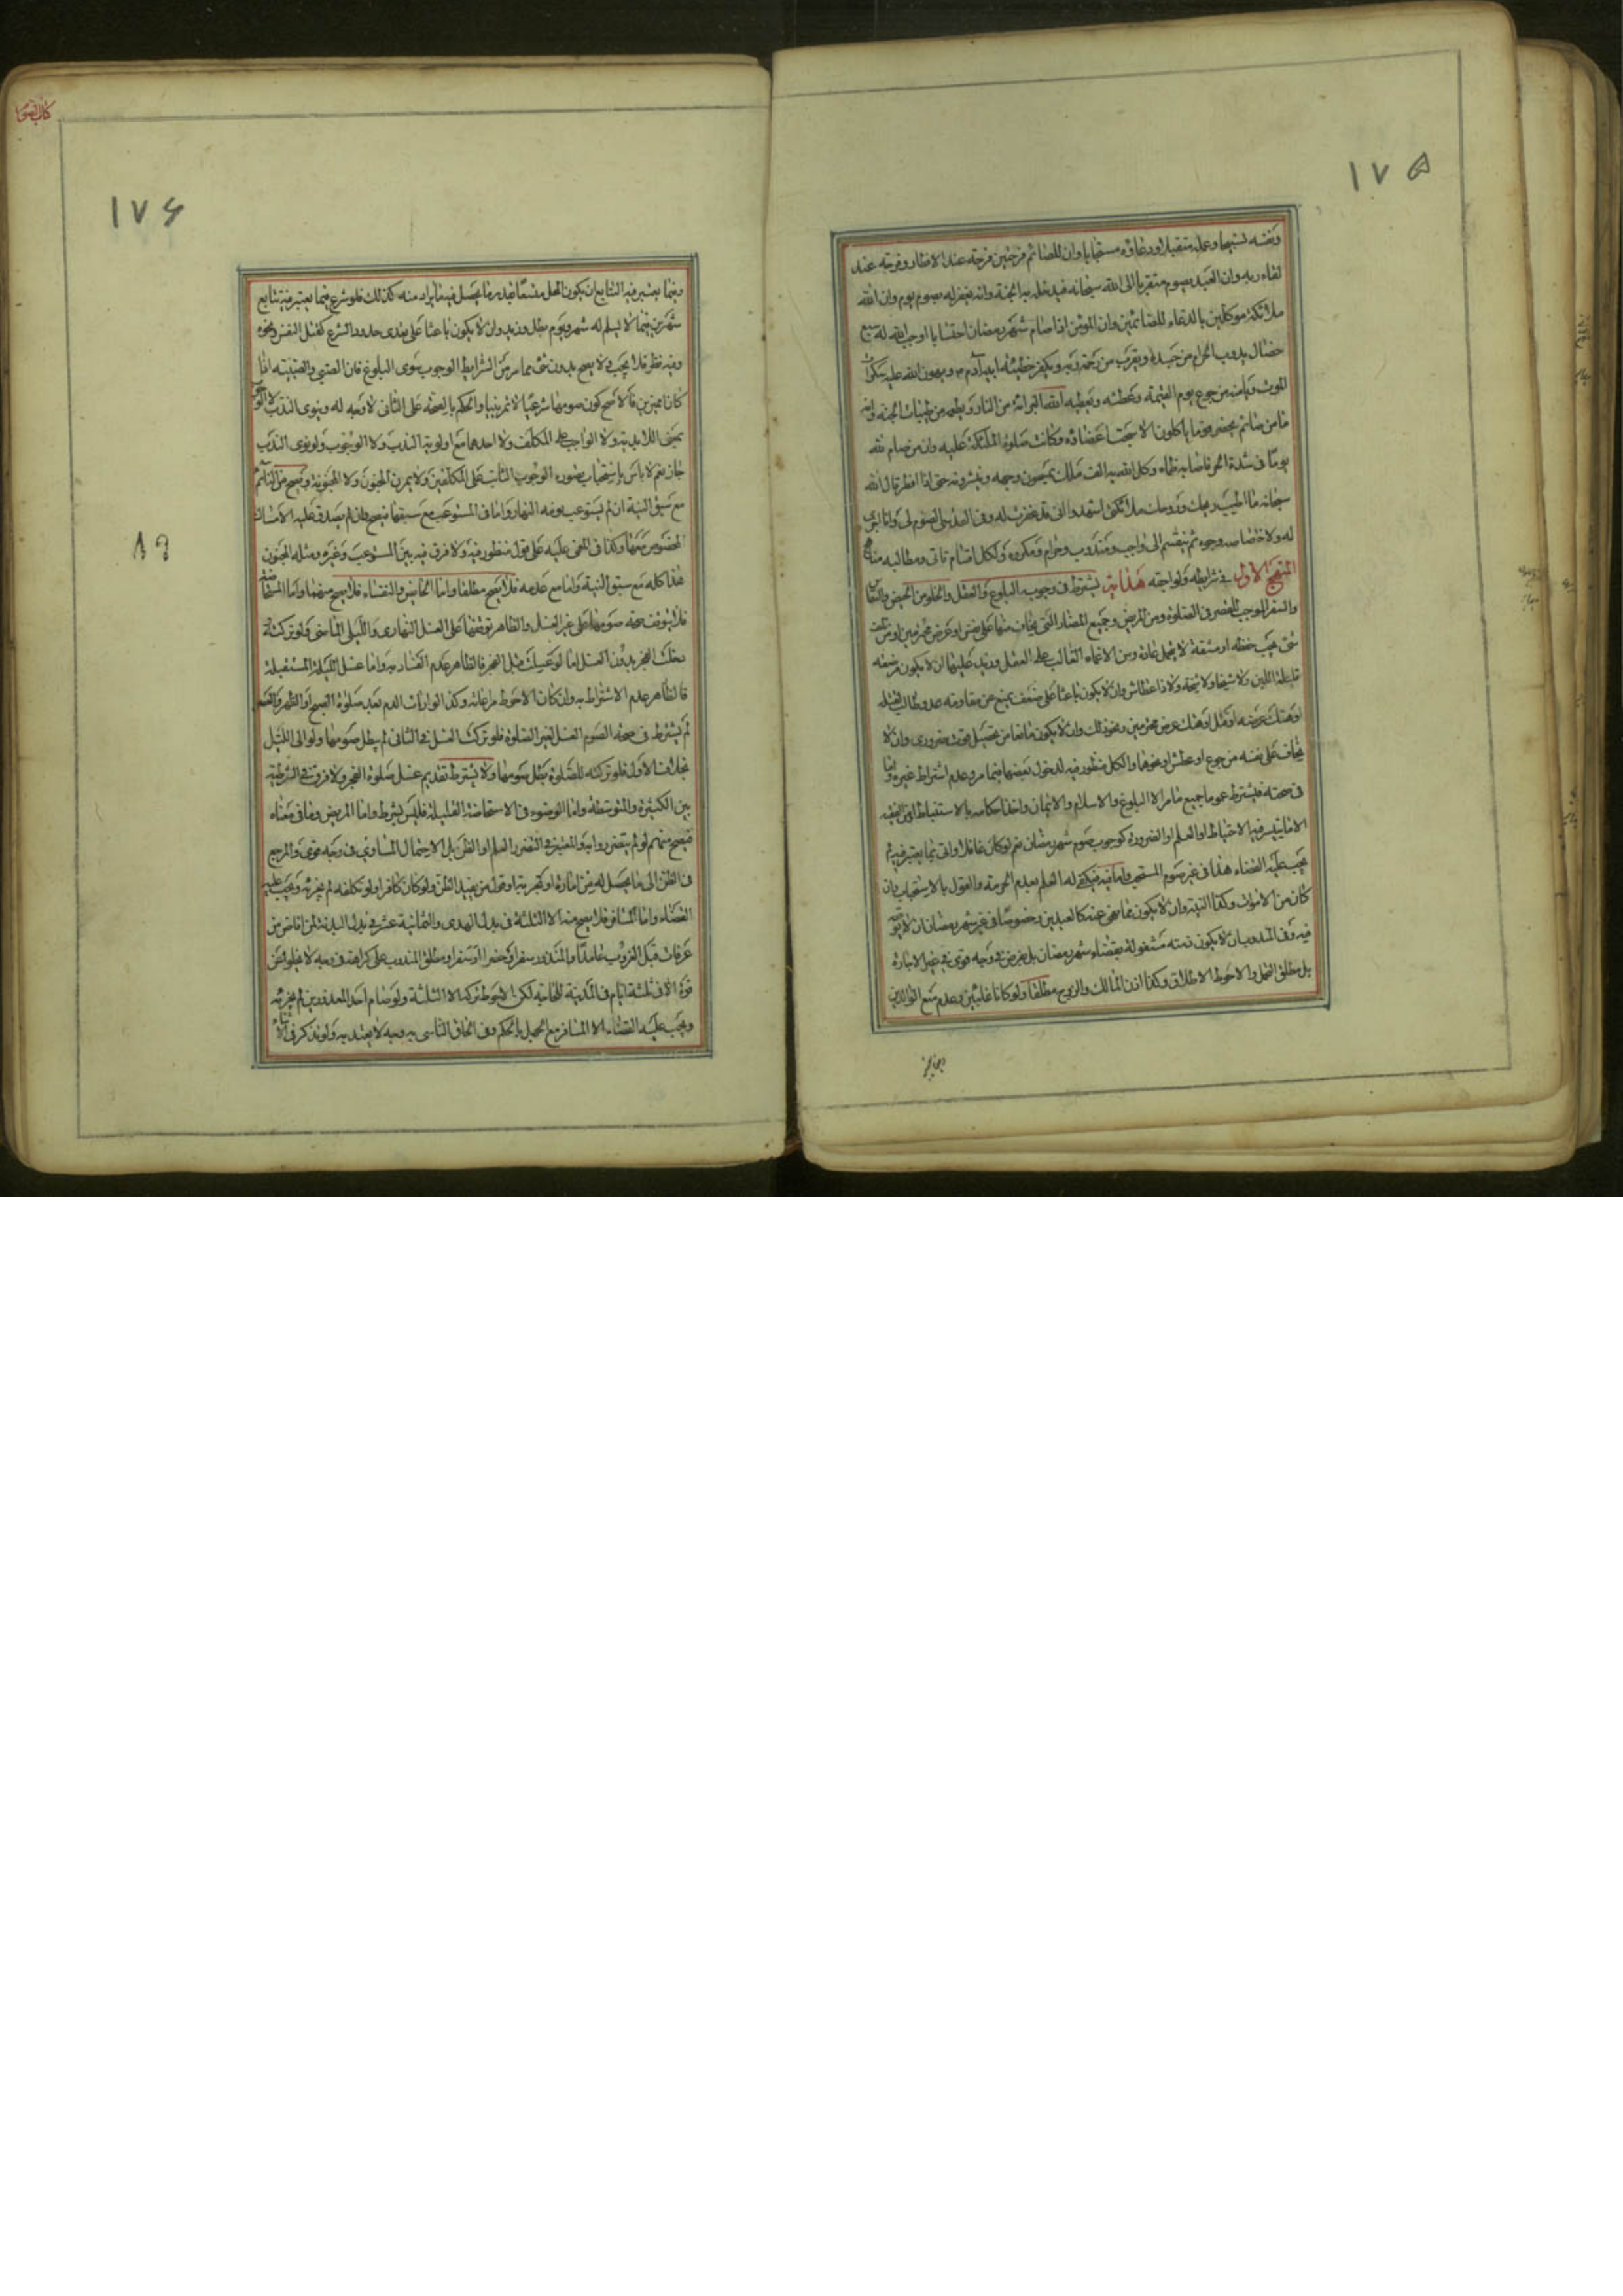 ١٧۵
ونفسه تسبيحا وعمله متقبلا ودعاؤه مستجابا وان للصائم فرحتين فرحة عند الافطار وفرحة عند
لقاء ربه وان العبد يصوم متقربا الى الله سبحانه فيدخله به الجنة وانه يغفر له بصوم يوم وان الله
ملائكة موكلين بالدعاء للصائمين وان المؤمن اذا صام شهر رمضان احتسابا اوجب الله له سبع
خصال يذوب الحرام من جسده ويقرب من رحمة ربه ويكفر خطيئة ابيه آدم ويهون الله عليه سكرات
الموت ويأمنه من جوع يوم القيمة وعطشه ويعطيه الله البرائة من النار ويطعمه من طيبات الجنة وانه
ما من صائم يحضر قوما يأكلون الا سبحت اعضاؤه وكانت صلوة الملئكة عليه وان من صام لله
يوما فى شدة الحر فاصابه ظماء وكل الله به الف ملك يمسحون وجهه ويبشرونه حتى اذا افطر قال الله
سبحانه ما اطيب ريحك وروحك ملائكتى اشهدوا انى قد غفرت له وفى القدسى الصوم لى وانا اجزى
له ولاختصاصه وجوه ثم ينقسم الى واجب ومندوب وحرام ومكروه ولكل اقسام تاتى ومطالبه
المنهج الاول فى شرايطه ولواحقه هداية يشترط فى وجوبه البلوغ والعقل والخلو من الحيض والنفاس
والسفر الموجب للقصر فى الصلوة ومن المرض وجميع المضار التى يخاف منها على نفس او عرض محترمين او من تلف
شئ يجب حفظه او مشقة لا يتحمل عادة ومن الاغماء الغالب على العقل وزيد عليها ان لا يكون مرضعة
قليلة اللبن ولا شيخا ولا شيخة ولا ذا عطاش وان لا يكون باعثا على ضعف يمنع عن مقاومة عدو طالب لقتله
او هتك عرضه او قتل او هتك عرض محترمين ونحو ذلك وان لا يكون مانعا من تحصيل قوت ضرورى وان لا
يخاف على نفسه من جوع او عطش ونحوهما والكل منظور فيه لدخول بعضها فيما مر وعدم اشتراط غيره واما
فى صحته فيشترط عموما جميع ما مر الا البلوغ والاسلام والايمان واخذ احكامه بالاستنباط او من الفقيه
الا فيما يتيسر فيه الاحتياط او العلم او الضرورة كوجوب صوم شهر رمضان نعم لو كان غافلا واتى بما يعتبر فيه لم
يجب عليه القضاء هذا فى غير صوم المستحب واما فيه فيكفى له العلم بعدم الحرمة والقول بالاستحباب وان
كان من الاموات وكذا النية وان لا يكون مما نهى عنه كالعيدين وخصوصا فى غير شهر رمضان ان لا يقع
فيه وفى المندوب ان لا يكون ذمته مشغولة بقضاء شهر رمضان بل بفرض فى وجه قوى فى غير الاجارة
بل مطلق التحمل والاحوط الاطلاق وكذا اذن المالك والزوج مطلقا ولو كانا غائبين وعدم منع الوالدين
كتاب الصوم
١٧۶
وفيما يعتبر فيه التتابع ان يكون المحل متسعا لقدر ما يحصل فيه ما يراد منه كذلك فلو شرع فيما يعتبر فيه تتابع
شهرين فيما لا يسلم له شهر ويوم بطل وزيد وان لا يكون باعثا على تعدى حدود الشرع كقتل النفس ونحوه
وفيه نظر فلا يجب ولا يصح بدون شئ مما مر من الشرايط الوجوب سوى البلوغ فان الصبى والصبية اذا
كانا مميزين فالاصح كون صومهما شرعيا لا تمرينيا والحكم بالصحة على الثانى لا وجه له وينوى الندب لا الوجوب
بمعنى اللابدية ولا الواجب على المكلف ولا احدهما مع اولوية الندب ولا الوجوب ولو نوى الندب
جاز نعم لا باس باستصحاب صورة الوجوب الثابت على المكلفين ولا يمرن المجنون ولا المجنونة ويصح من النائم
مع سبق النية ان لم يستوعب نومه النهار واما فى المستوعب مع سبقها فيصح وان لم يصدق عليه الامساك
المخصوص معها وكذا فى المغمى عليه على قول منظور فيه ولا فرق فيه بين المستوعب وغيره ومثله المجنون
هذا كله مع سبق النية واما مع عدمه فلا يصح مطلقا واما الحايض والنفساء فلا يصح منهما واما المستحاضة
فلا يتوقف صحة صومها على غير الغسل والظاهر توقفها على الغسل النهارى والليلى الماضى ولو تركته
دخلت الفجر بدون الغسل اما لو غسلت قبل الفجر فالظاهر عدم الفساد به واما غسل الليلة المستقبلة
فالظاهر عدم الاشتراط به وان كان الاحوط مراعاته وكذا لو رأت الدم بعد صلوة الصبح او الظهر والعصر
لم يشترط فى صحة الصوم الغسل لغير الصلوة فلو تركت الغسل فى الثانى لم يبطل صومها ولو الى الليل
بخلاف الاول فلو تركته للصلوة بطل صومها ولا يشترط تقديم غسل صلوة الفجر ولا فرق فى الشرطية
بين الكثيرة والمتوسطة واما الوضوء فى الاستحاضة القليلة فليس بشرط واما المريض وما فى معناه
فيصح منهم لو لم يتضرروا به والمعتبر فى التضرر العلم او الظن بل الاحتمال المساوى فى وجه قوى والمرجع
فى الظن الى ما يحصل له من امارة او تجربة او قول من يفيد الظن ولو كان كافرا ولو تكلفه لم يجزئه ويجب عليه
القضاء واما المسافر فلا يصح منه الا الثلثة فى بدل الهدى والثمانية عشر فى بدل البدنة لمن افاض من
عرفات قبل الغروب عامدا والمنذور سفرا وحضرا او سفرا ومطلق المندوب على كراهة فى وجه لا يخلو عن
قوة الا فى ثلثة ايام فى المدينة للحاجة لكن الاحوط تركه الا الثلثة ولو صام احد المعذورين لم يجزئه
ويجب عليه القضاء الا المسافر مع الجهل بالحكم وفى الحاق الناسى به وجه لا يعتد به ولو تذكر فى الاثناء